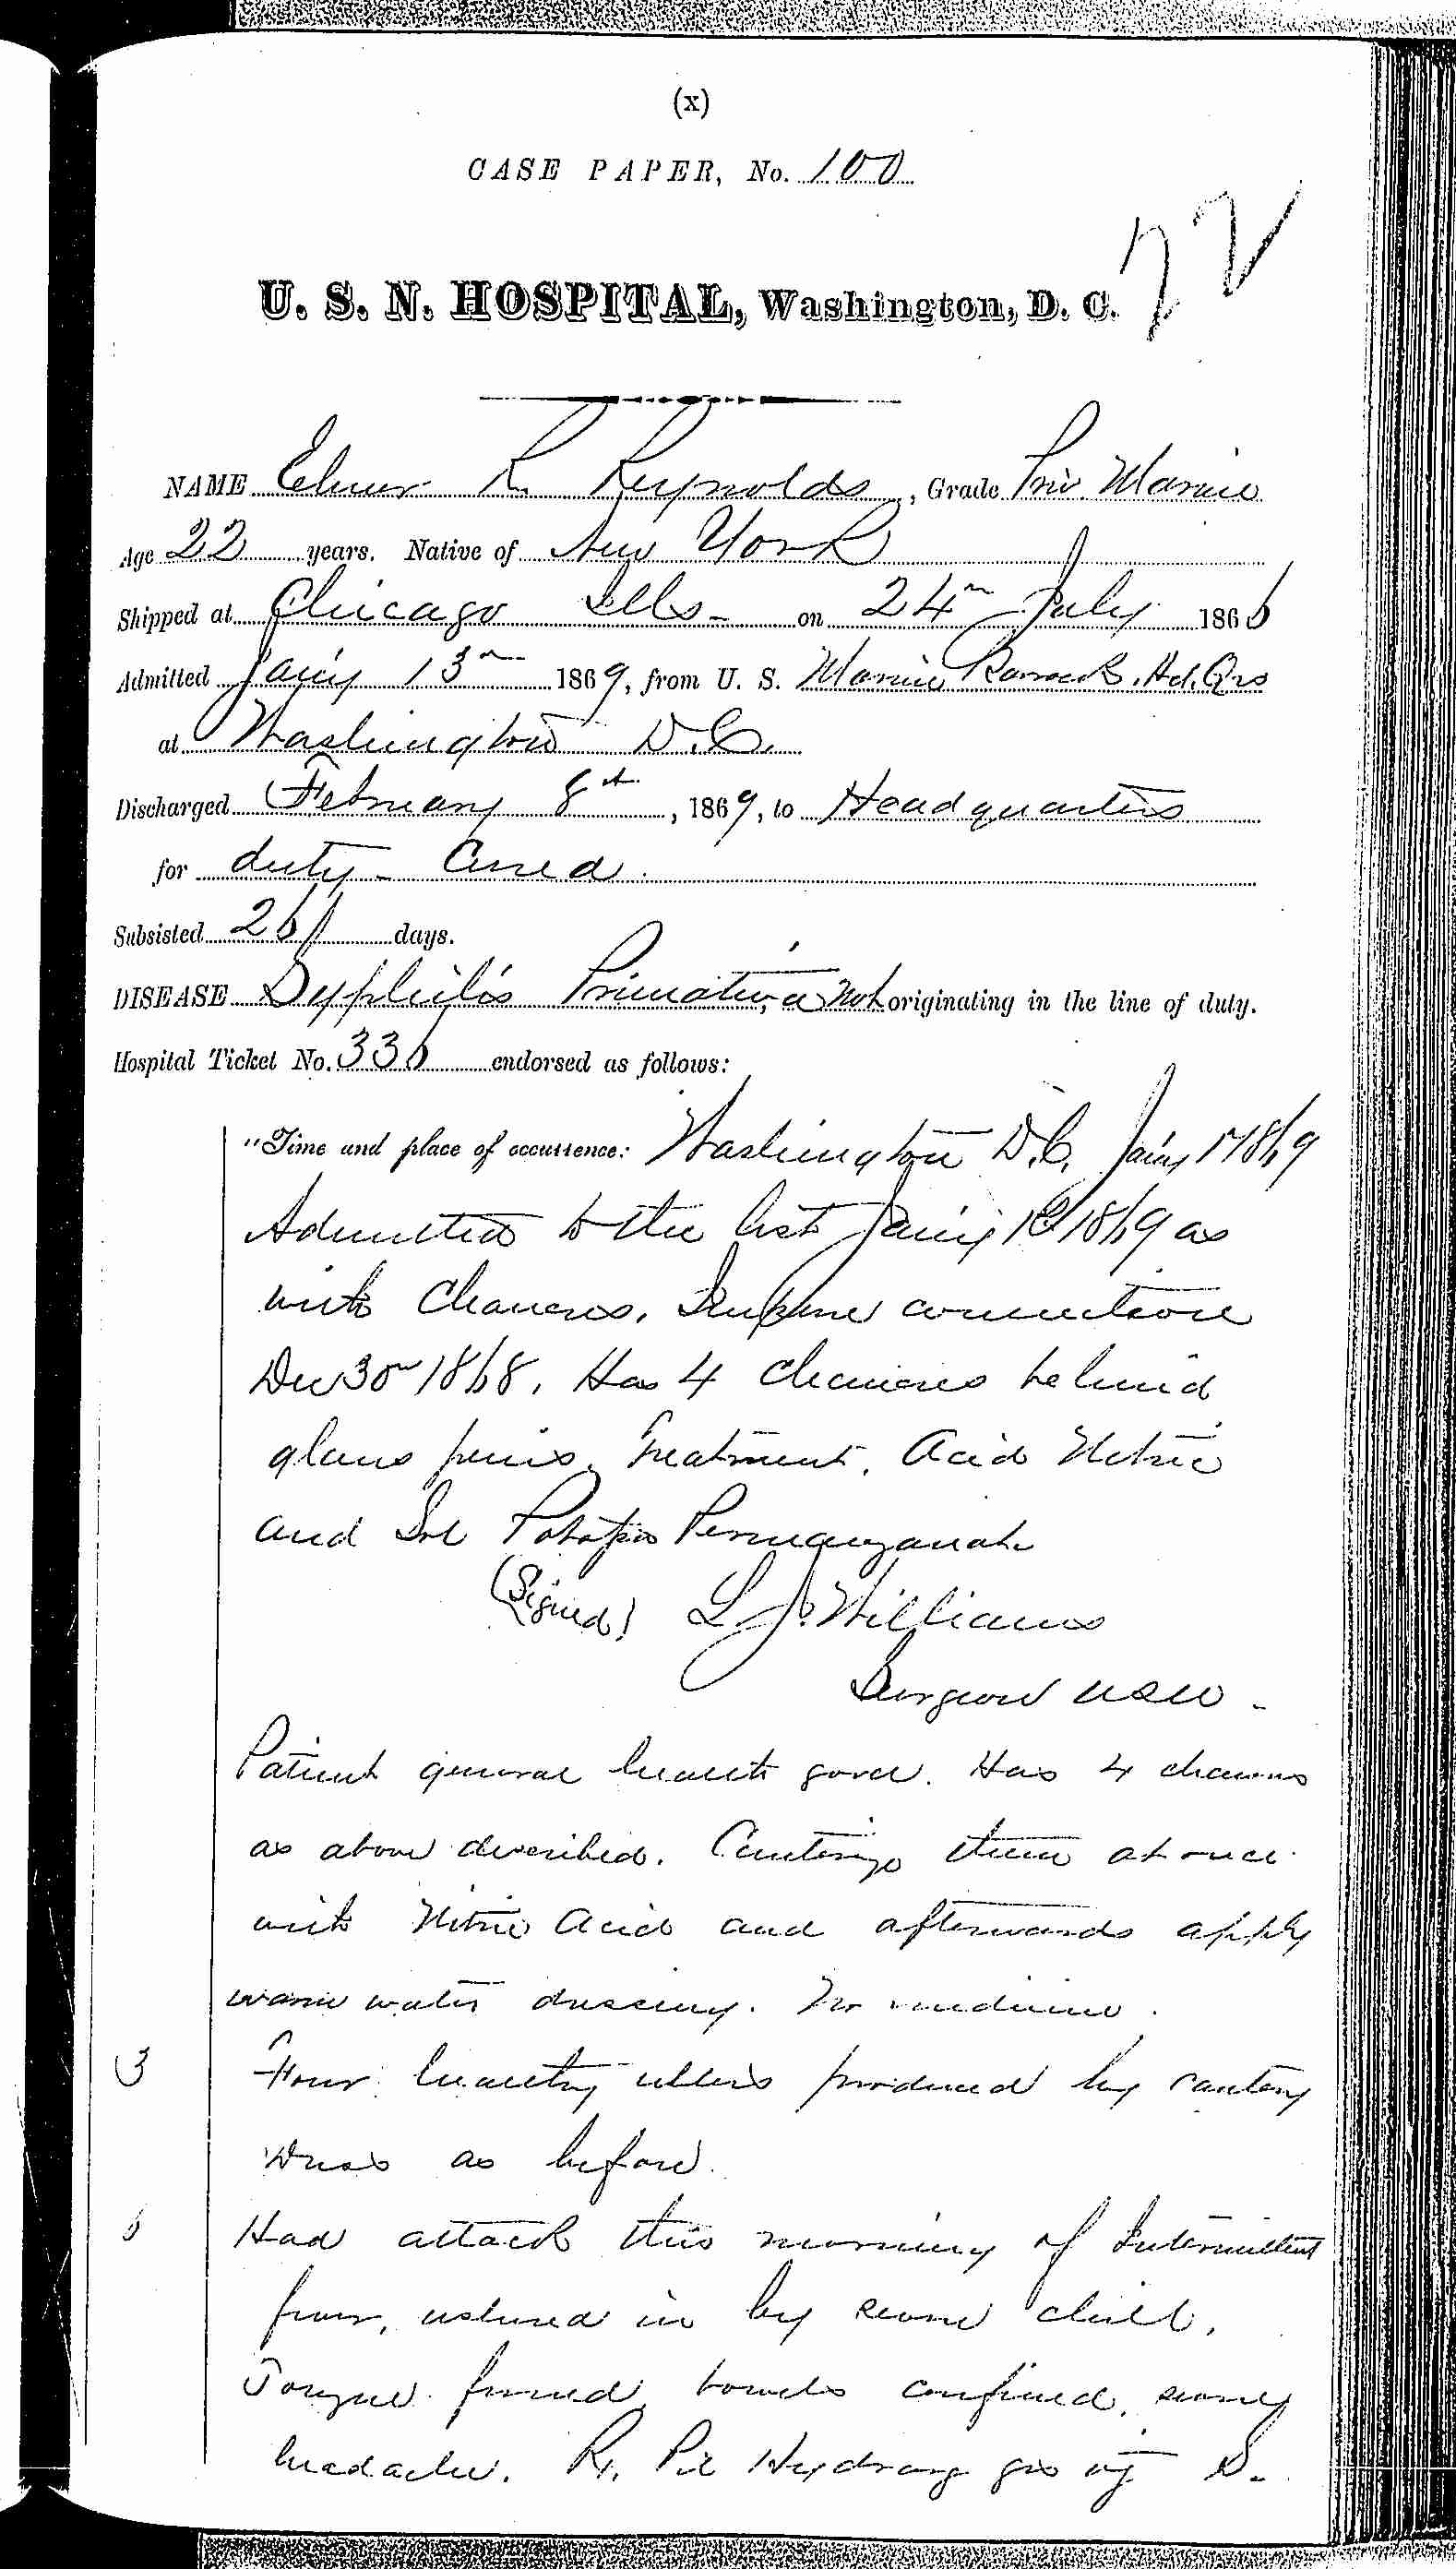 (x)
CASE PAPER, No. 100
72
U. S. N. HOSPITAL, Washington, D. C.
NAME Elmer R. Reynolds, Grade Priv. Marine
Age 22 years. Native of New York
Shipped at Chicago Ills - on 24th July 1866
Admitted Jany 13th 1869, from U. S. Marine Barracks, Hd. Qrs
at Washington D.C.
Discharged February 8th, 1869, to Headquarters
for duty - Cured.
Subsisted 26 days.
DISEASE Syphilis Primitiva Not originating in the line of duty.
Hospital Ticket No. 336 endorsed as follows:
"Time and place of occurrence: Washington D.C. Jany 1869
Admitted to the list Jany 1869 as
with Chancres. Impure connection
Dec 30th 1868. Has 4 chancres behind
glans penis. Treatment. Acid Nitric
and Sol Potassa Permanganate
(Signed) L. J. Williams
Surgeon USN -
Patient general health good. Has 4 chancres
as above described. Cauterize them at once
with Nitric Acid and afterwards apply
warm water dressing. No medicine.
3 Four healthy ulcers produced by cautery
Dress as before.
6 Had attack this morning of Intermittent
fever, ushered in by severe chill.
Tongue furred, bowels confined, severe
headache. Rx. Pil Hydrarg grs vj S.